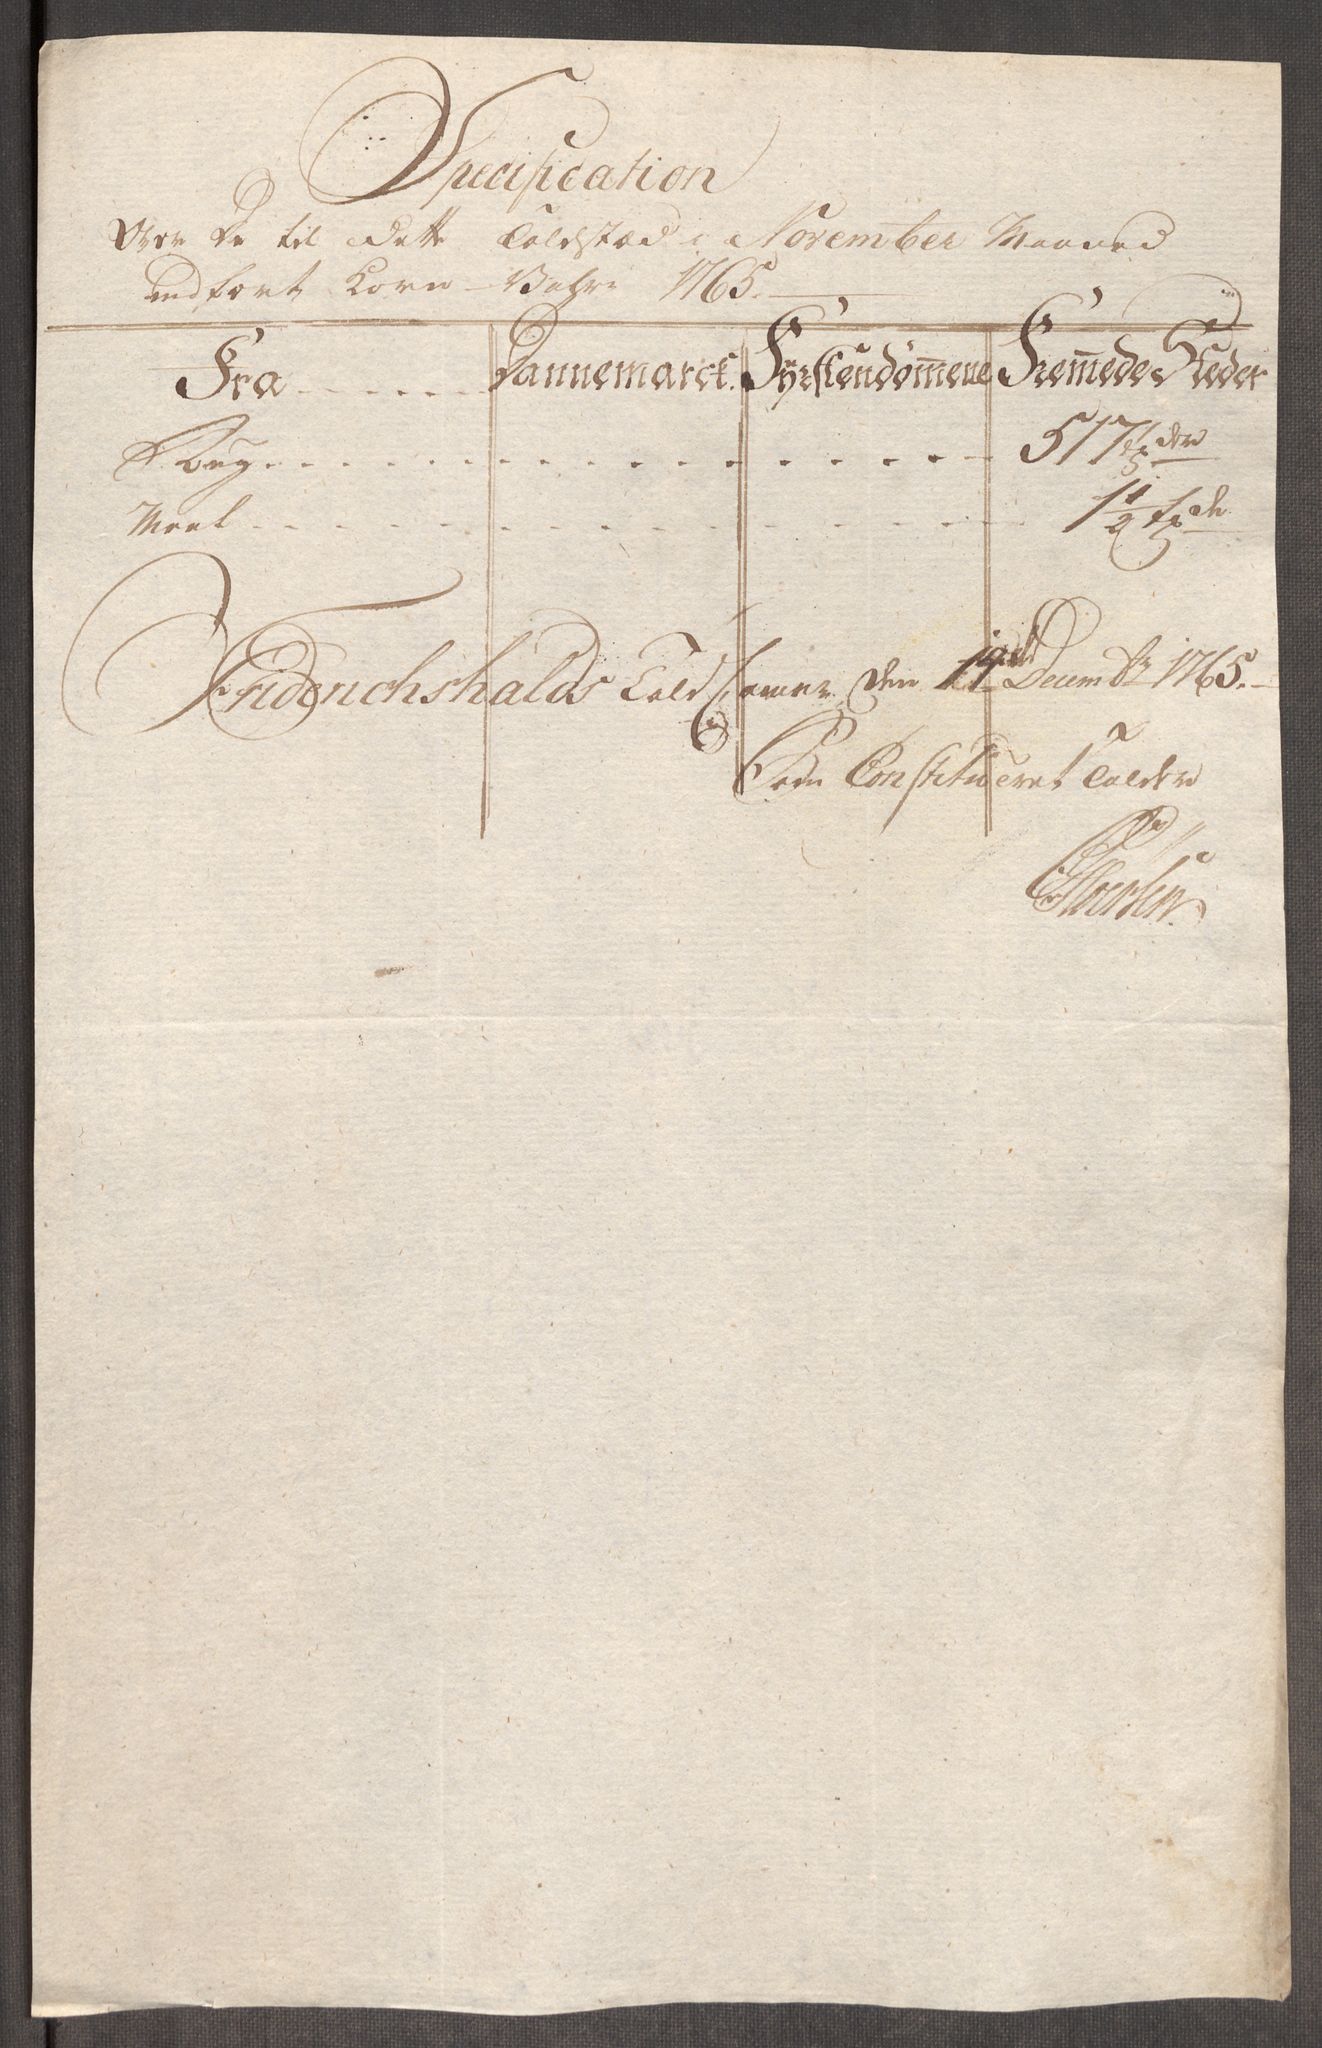 Specification
Over De til dette Toldstæd i November Maaned
indført Korn-Vahre 1765.
Fra Dannemarck. Fyrstendømene Fremede Steder
Rug 517 Tdr
Meel 1 1/2 Tde
Friderichshalds Told Camer den Decembr 1765.
Som Constitueret Tolder